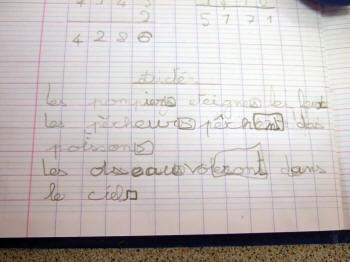 2 5771
4286
Dictée
Les pompiers éteignes le feu
Les pêcheurs pêchent des
poissons
Les oiseaux voleront dans
le ciel